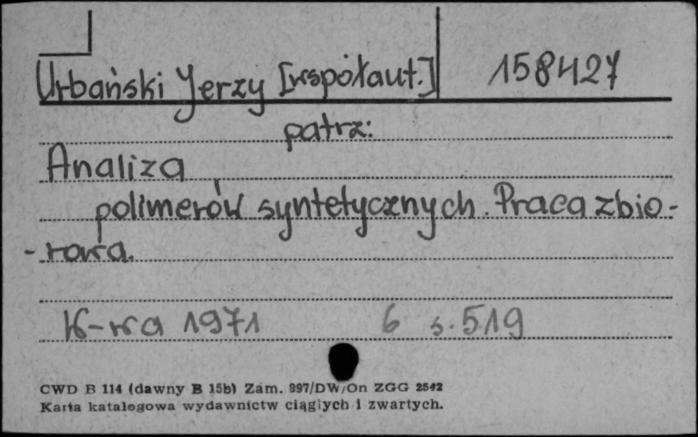 Urbański Jerzy [współaut.] 158427
patrz:
Analiza
polimerów syntetycznych. Praca zbio-
-rowa.
W-wa 1971 6 s. 519
CWD B 114 (dawny B 15b) Zam. 997/DW/On ZGG 2542
Karta katalogowa wydawnictw ciągłych i zwartych.